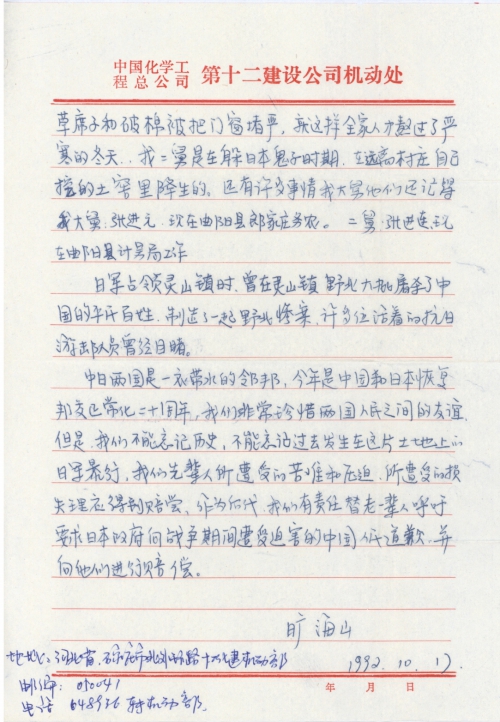 中国化学工
程总公司 第十二建设公司机动处
草席子和破棉被把门窗堵严，就这样全家人才熬过了严
寒的冬天。我二舅是在躲日本鬼子时期，在远离村庄自己
挖的土窖里降生的。还有许多事情我大舅他们还记得
我大舅：张进元，现在曲阳县郎家庄务农。二舅：张进连现
在曲阳县计量局工作
日军占领灵山镇时，曾在灵山镇野北大批屠杀了中
国的平民百姓，制造了一起野北惨案，许多位活着的抗日
游击队员曾经目睹。
中日两国是一衣带水的邻邦，今年是中国和日本恢复
邦交正常化二十周年，我们非常珍惜两国人民之间的友谊
但是，我们不能忘记历史，不能忘记过去发生在这片土地上的
日军暴行，我们先辈人所遭受的苦难和压迫，所遭受的损
失理应得到赔偿，作为后代，我们有责任替老一辈人呼吁
要求日本政府向战争期间遭受迫害的中国人民道歉，并
向他们进行赔偿。
旷海山
地址：河北省，石家庄市北外环路十二化建机动部
1992.10.17.
邮编：050041
年 月 日
电话 648936 转机动部。